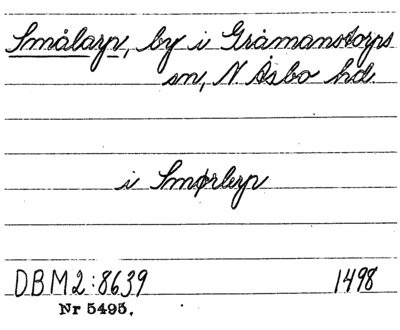 Smålarp, by i Gråmanstorps
sn, N Åsbo hd
i Smørlerp
DBM2:8639 1498
Nr 5495.